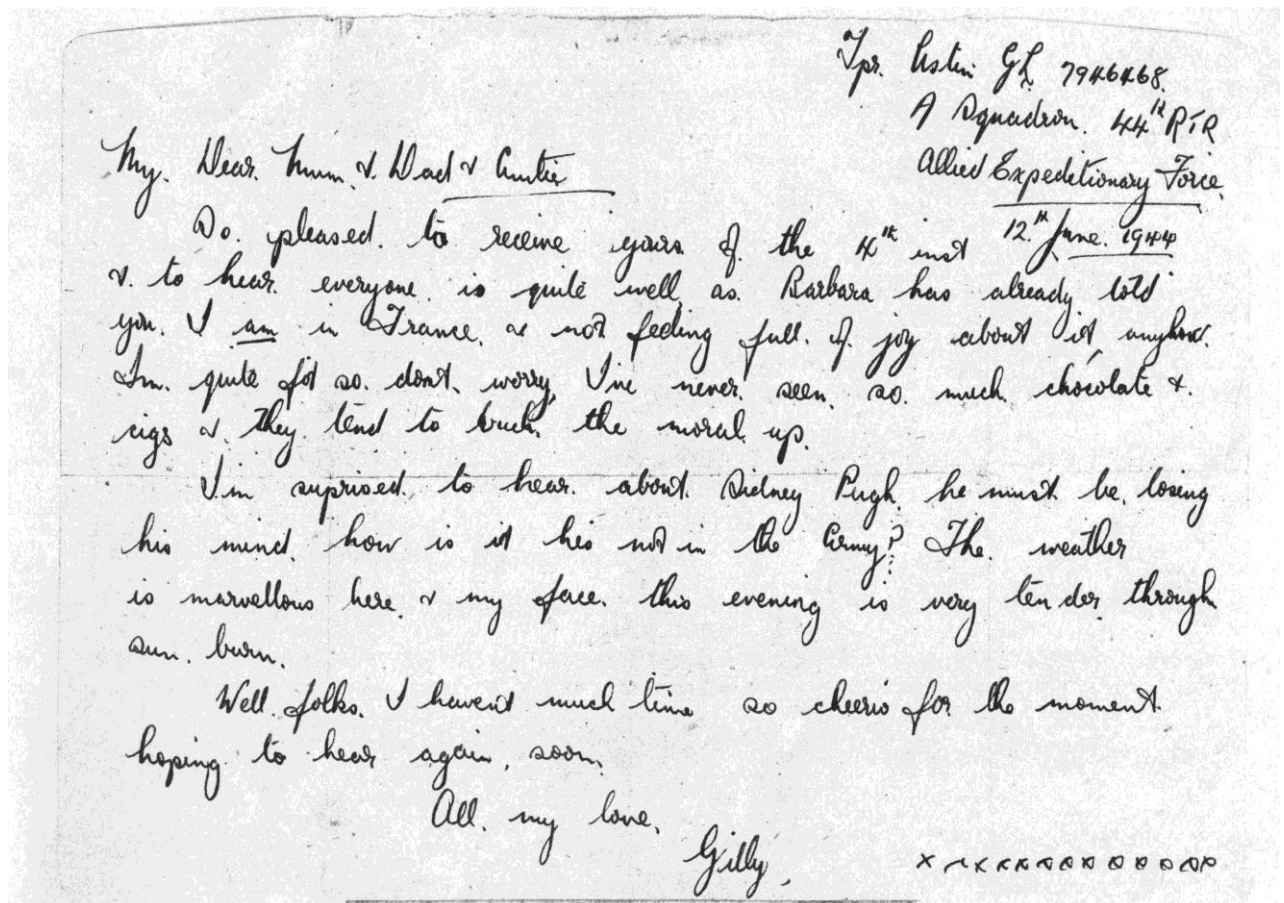 Tpr. Astin G L 7946468.
A Squadron. 44th RTR
Allied Expeditionary Force.
12.th June. 1944
My. Dear. Mum. & Dad & Auntie
So. pleased. to receive yours of. the 4th inst
& to hear. everyone. is quite well, as. Barbara has already told
you. I am in France. & not feeling full. of. joy about it anyhow.
I'm. quite fit so. dont. worry, I've never. seen. so. much. chocolate &
cigs & they tend to buck. the moral up.
I'm suprised. to hear. about. Sidney Pugh. he must be. losing
his mind. how is it hes not in the Army? The. weather
is marvellous here. & my face. this evening is very tender through
sun. burn.
Well folks. I havent much time so cheerio for the moment
hoping to hear again, soon,
All. my love,
Gilly,
x x x x x x x x x x x x x